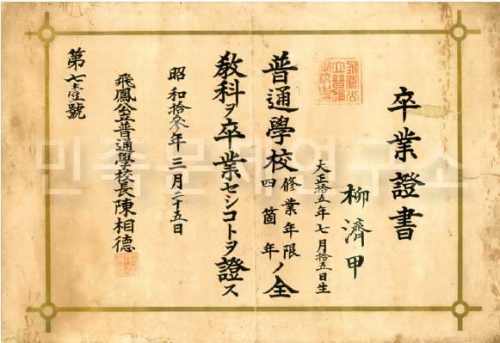 卒業證書
柳濟甲
大正拾五年七月拾五日生
普通學校修業年限四箇年ノ全
教科ヲ卒業セシコトヲ證ス
昭和拾參年三月二十五日
飛鳳公立普通學校長陳相德
第七壹號
민족문제연구소